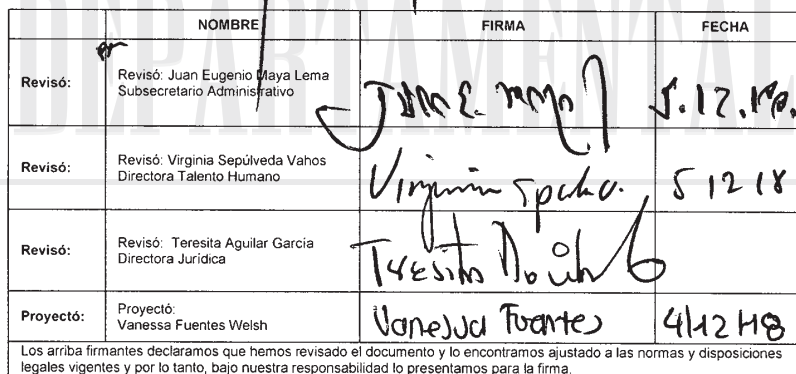 DEPARTAMENTAL
NOMBRE FIRMA FECHA
Revisó: Revisó: Juan Eugenio Maya Lema
Subsecretario Administrativo
Juan E. Maya 5.12.18.
Revisó: Revisó: Virginia Sepúlveda Vahos
Directora Talento Humano
Virginia 5 12 18
Revisó: Revisó: Teresita Aguilar García
Directora Jurídica
Teresita Aguilar
Proyectó: Proyectó:
Vanessa Fuentes Welsh
Vanessa Fuentes 4/12/18
Los arriba firmantes declaramos que hemos revisado el documento y lo encontramos ajustado a las normas y disposiciones
legales vigentes y por lo tanto, bajo nuestra responsabilidad lo presentamos para la firma.